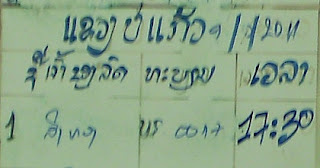 ແຂວງ ບໍ່ແກ້ວ 9/1/2011
ຊື່ເຈົ້າຂອງລົດ ທະບຽນ ເວລາ
1 ບຣ 0017 17:30